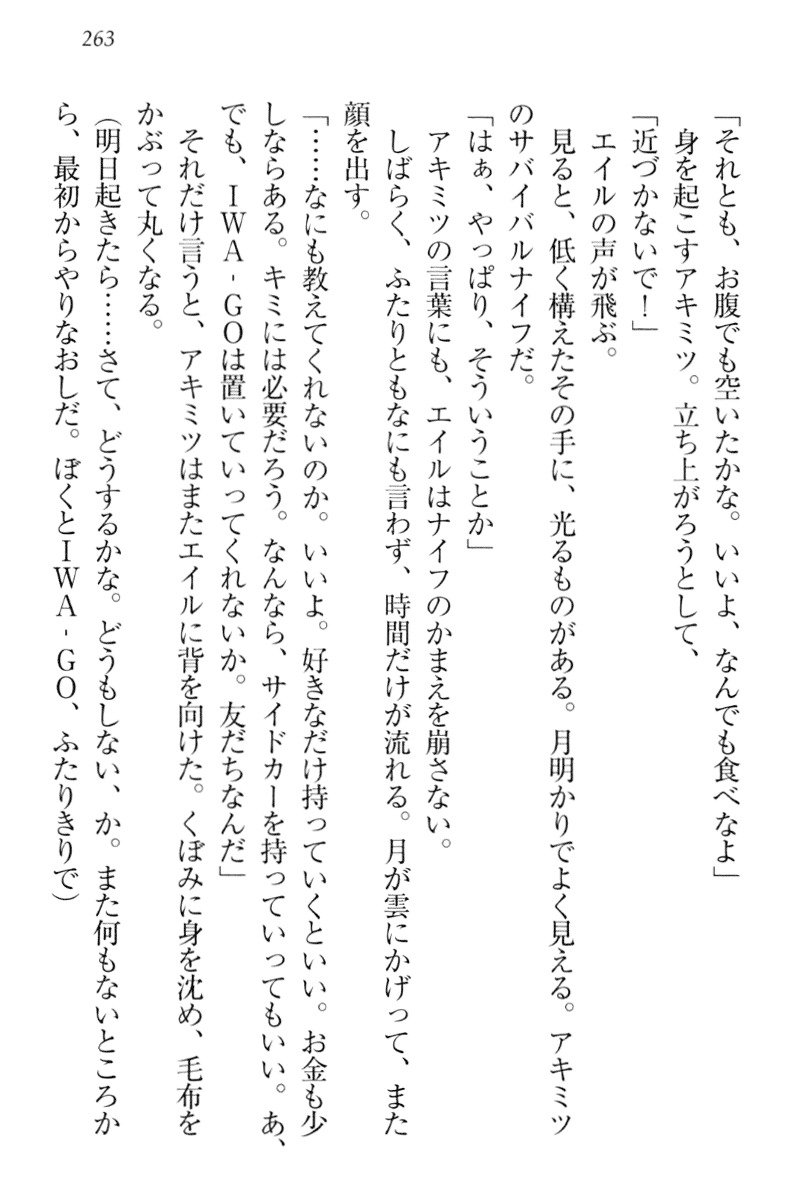 263
「それとも、お腹でも空いたかな。いいよ、なんでも食べなよ」
身を起こすアキミツ。立ち上がろうとして、
「近づかないで！」
エイルの声が飛ぶ。
見ると、低く構えたその手に、光るものがある。月明かりでよく見える。アキミツ
のサバイバルナイフだ。
「はぁ、やっぱり、そういうことか」
アキミツの言葉にも、エイルはナイフのかまえを崩さない。
しばらく、ふたりともなにも言わず、時間だけが流れる。月が雲にかげって、また
顔を出す。
「……なにも教えてくれないのか。いいよ。好きなだけ持っていくといい。お金も少
しならある。キミには必要だろう。なんなら、サイドカーを持っていってもいい。あ、
でも、ＩＷＡ‐ＧＯは置いていってくれないか。友だちなんだ」
それだけ言うと、アキミツはまたエイルに背を向けた。くぼみに身を沈め、毛布を
かぶって丸くなる。
（明日起きたら……さて、どうするかな。どうもしない、か。また何もないところか
ら、最初からやりなおしだ。ぼくとＩＷＡ‐ＧＯ、ふたりきりで）